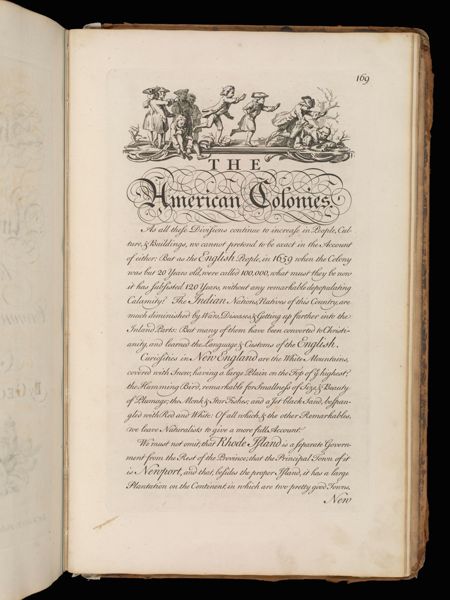 169
THE
American Colonies.
As all these Divisions continue to increase in People, Cul-
ture, & Buildings, we cannot pretend to be exact in the Account
of either: But as the English People, in 1659 when the Colony
was but 20 Years old, were called 100,000, what must they be now
it has subsisted 120 Years, without any remarkable depopulating
Calamity? The Indian Nations, Natives of this Country, are
much diminished by Wars, Diseases & Getting up farther into the
Inland Parts: But many of them have been converted to Christi-
anity, and learned the Language & Customs of the English.
Curiosities in New England are the White Mountains,
covered with Snow, having a large Plain on the Top of ye highest;
the Humming Bird, remarkable for Smallness of Size, & Beauty
of Plumage; the Monk & Star Fishes; and a Jet black Sand, bespan-
gled with Red and White: Of all which, & the other Remarkables,
we leave Naturalists to give a more full Account.
We must not omit, that Rhode Island is a separate Govern-
ment from the Rest of the Province; that the Principal Town of it
is Newport, and that, besides the proper Island, it has a large
Plantation on the Continent, in which are two pretty good Towns,
New